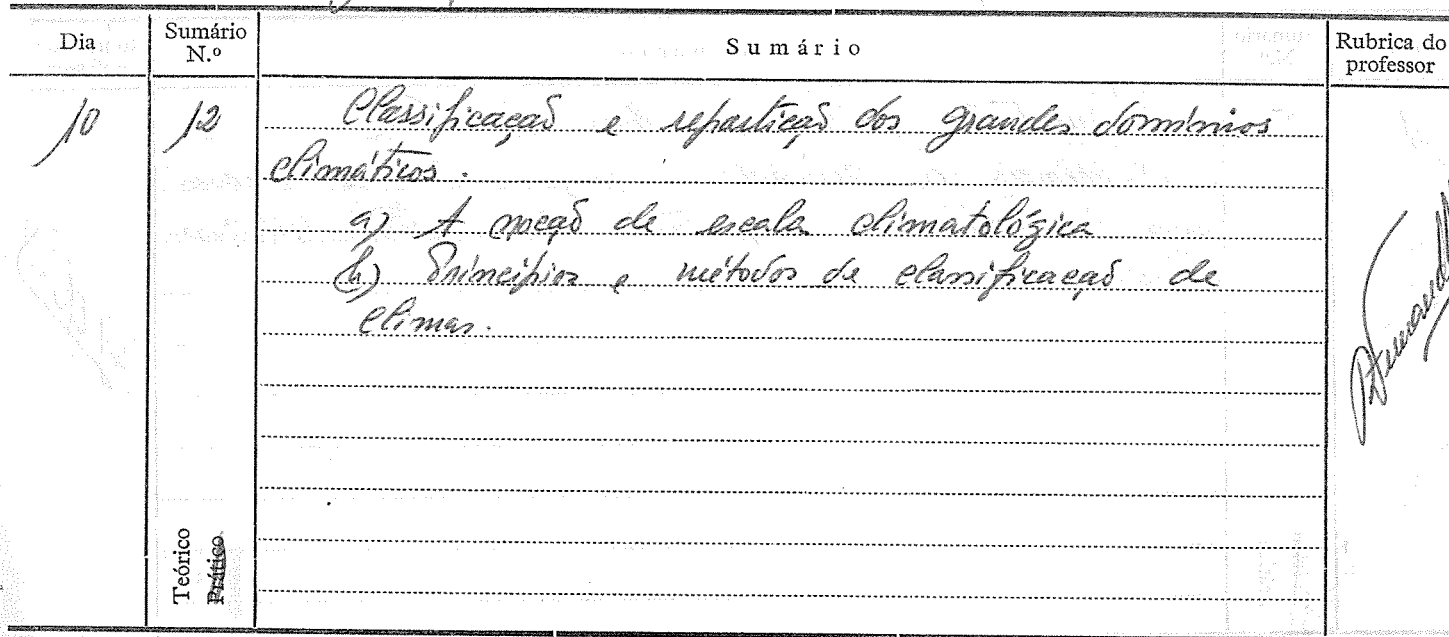 Dia Sumário N.º Sumário Rubrica do professor
10 12 Classificação e repartição dos grandes domínios
climáticos.
a) A noção de escala climatológica
b) Princípios e métodos de classificação de
climas.
Teórico
Prático